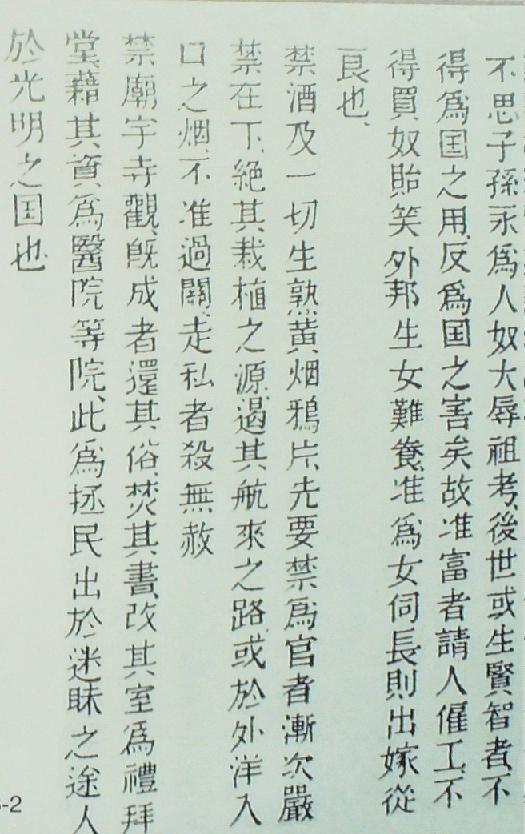 不思子孫永爲人奴大辱祖考、後世或生賢智者、不
得爲国之用、反爲国之害矣故准富者請人僱工、不
得買奴貽笑外邦生女難養、准爲女伺長則出嫁從
良也、
禁酒及一切生熟黃烟鴉片、先要禁爲官者漸次嚴
禁在下、絕其栽植之源、遏其航來之路、或於外洋入
口之烟、不准過關、走私者殺無赦
禁廟宇寺觀、既成者還其俗、焚其書、改其室爲禮拜
堂、藉其資爲醫院等院、此爲拯民出於迷昧之途人
於光明之国也
-2